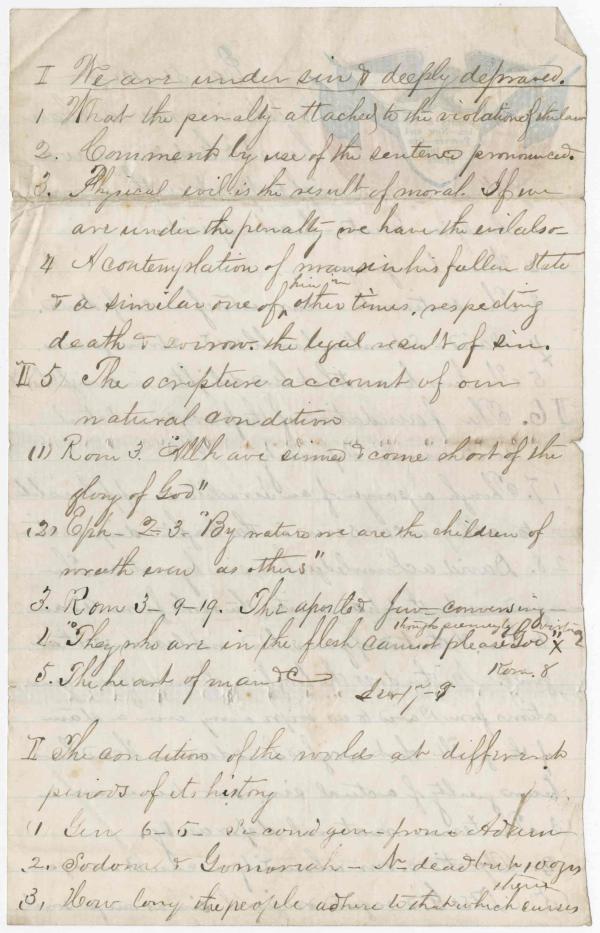 I We are under sin & deeply depraved.
1 What the penalty attached to the violation of the law
2. Comment by use of the sentence pronounced.
3. Physical evil is the result of moral. If we
are under the penalty we have the evil also—
4 A contemplation of man in his fallen state
& a similar one of him in other times, respecting
death & sorrow. the legal result of sin.
II 5 The scripture account of our
natural condition
(1) Rom 3. "All have sinned & come short of the
glory of God"
(2) Eph – 2–3– "By nature we are the children of
wrath even as others"
3. Rom 3–9–19. The apostle & Jew– conversing—
though seemingly
4 "They who are in the flesh cannot please God" x
5. The heart of man &c Rom. 8
Jer 17–9
II The condition of the worlds at different
periods of its history
(1 Gen 6–5– Second gen– from Adam
2. Sodom & Gomorrah – N dead but 100 yrs
3, How long the people adhere to that which curses